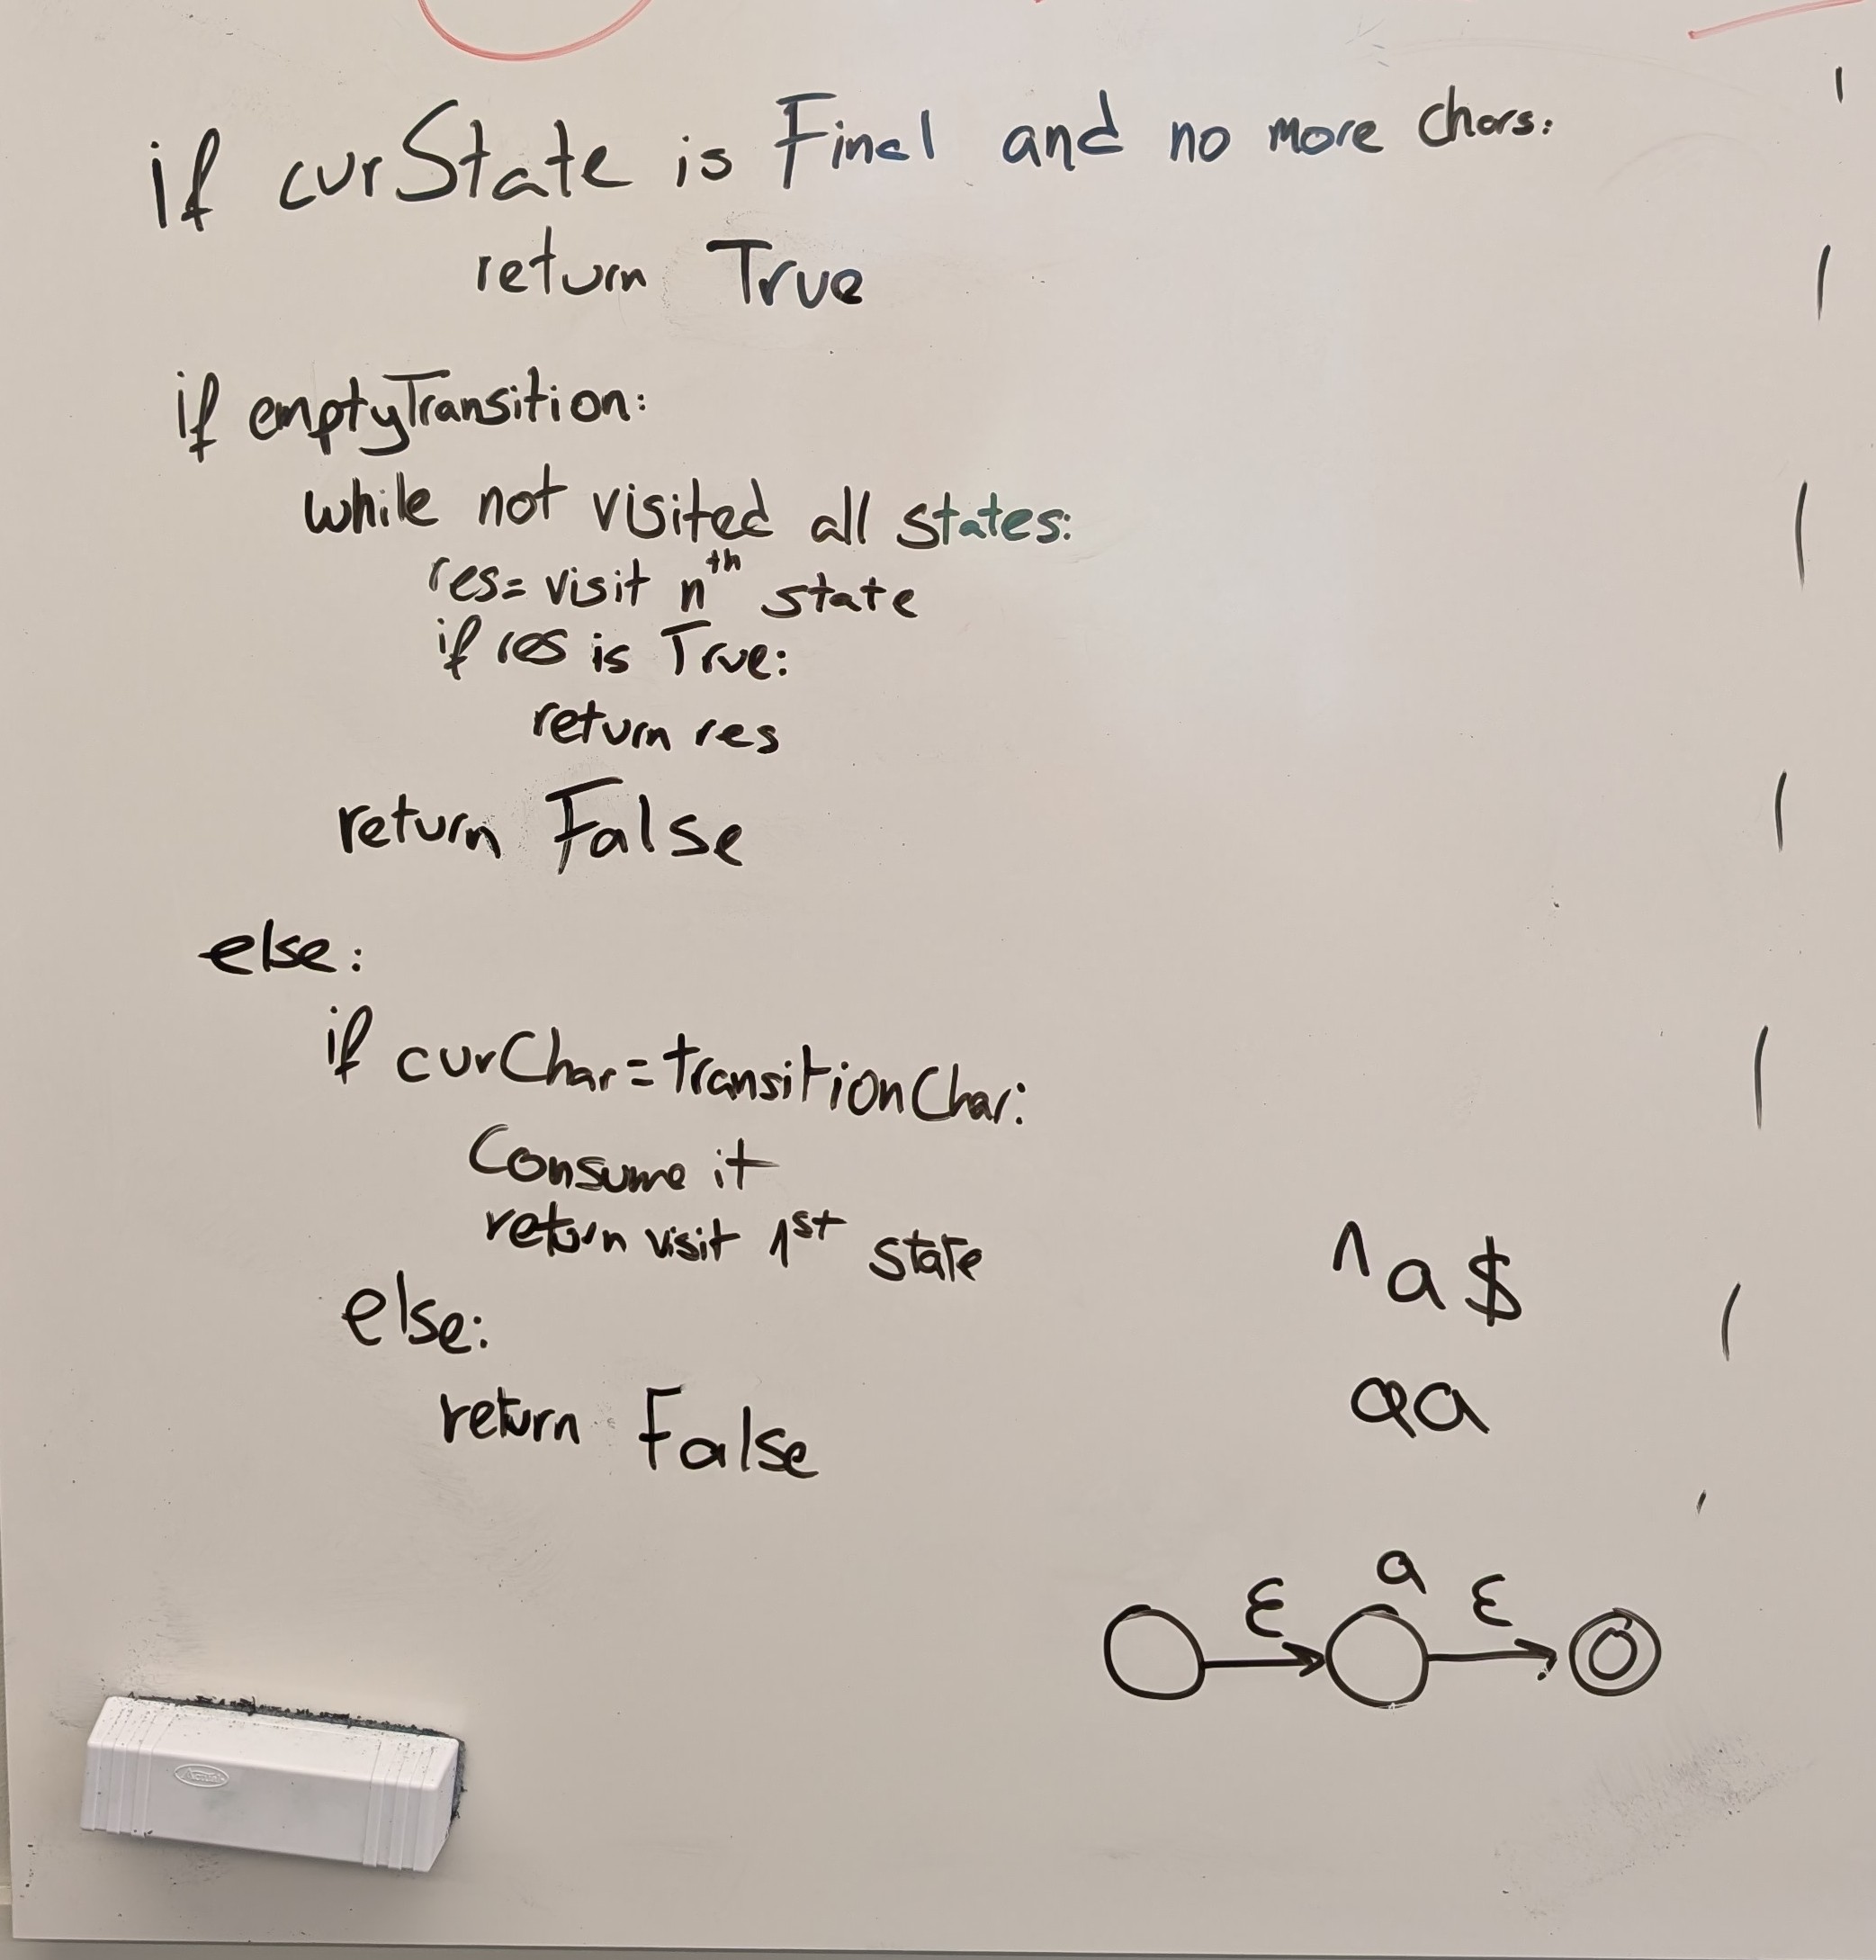 if curState is Final and no more chars:
return True
if emptyTransition:
while not visited all states:
res= visit nth state
if res is True:
return res
return False
else:
if curChar=transitionChar:
Consume it
return visit 1st state
else:
return False
^a$
aa
ε a ε